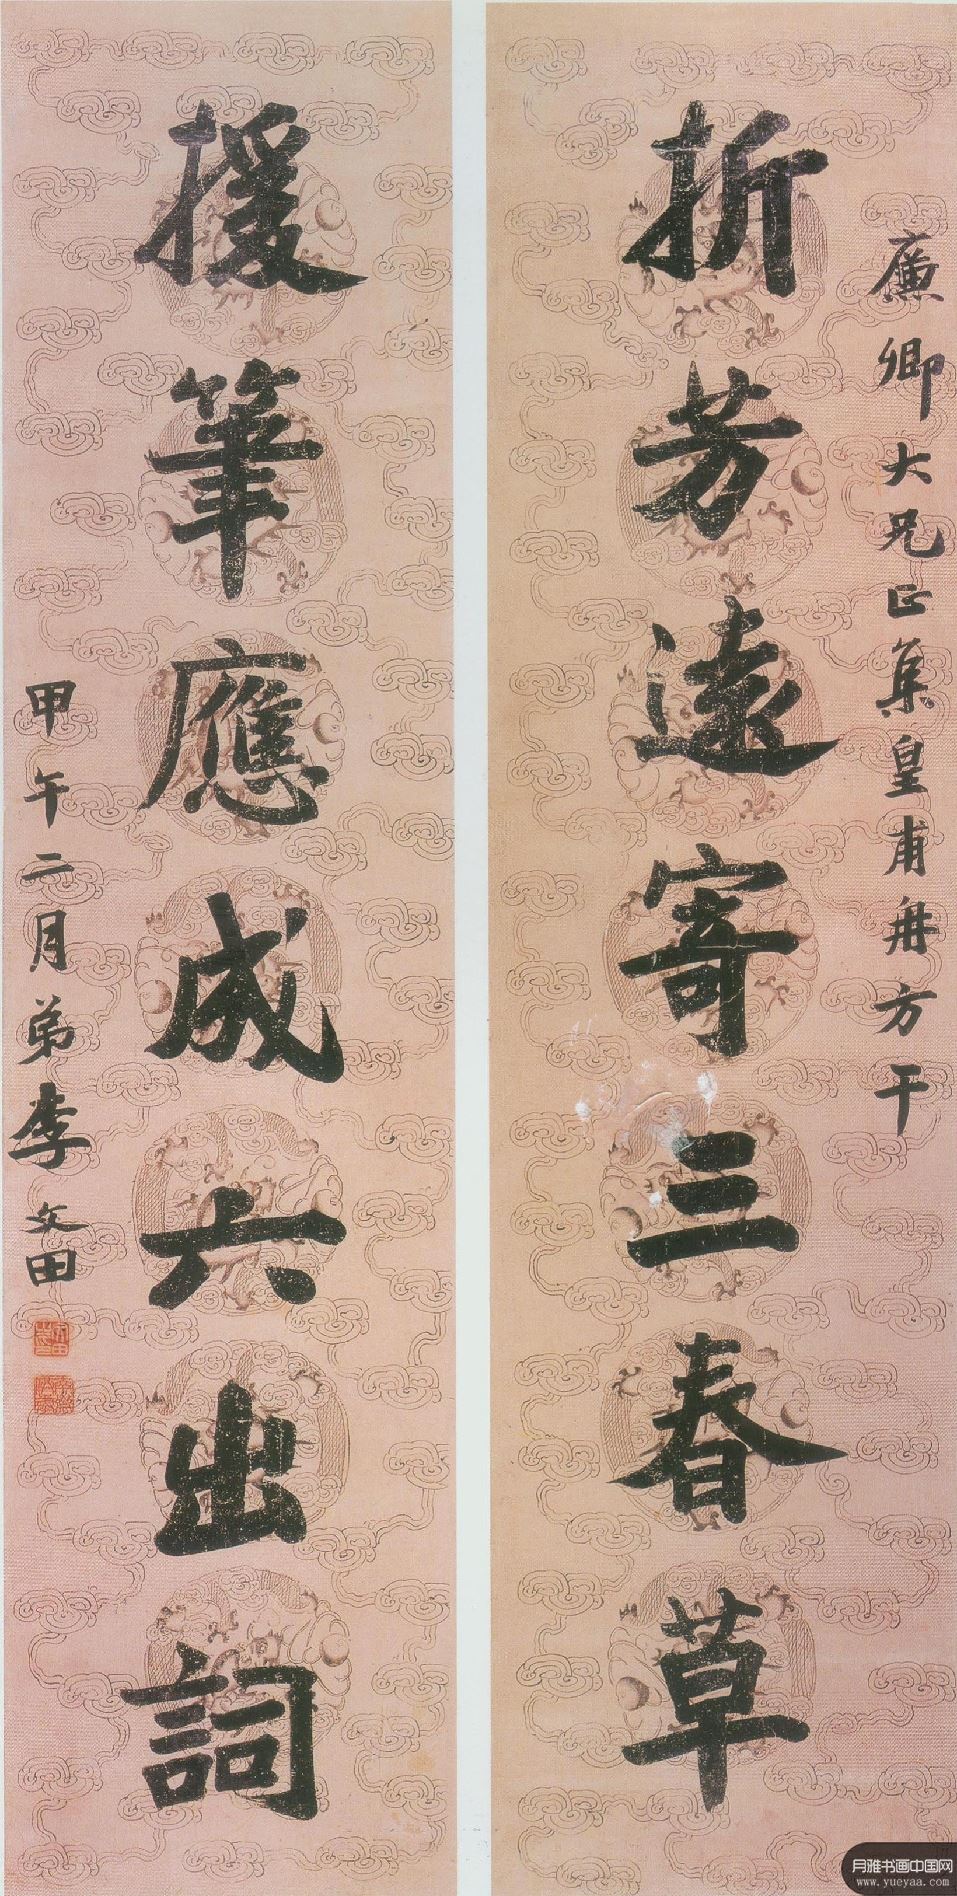 廉卿大兄正集皇甫冉方干
折芳遠寄三春草
援筆應成六出詞
甲午二月弟李文田
月雅书画中国网
www.yueyaa.com